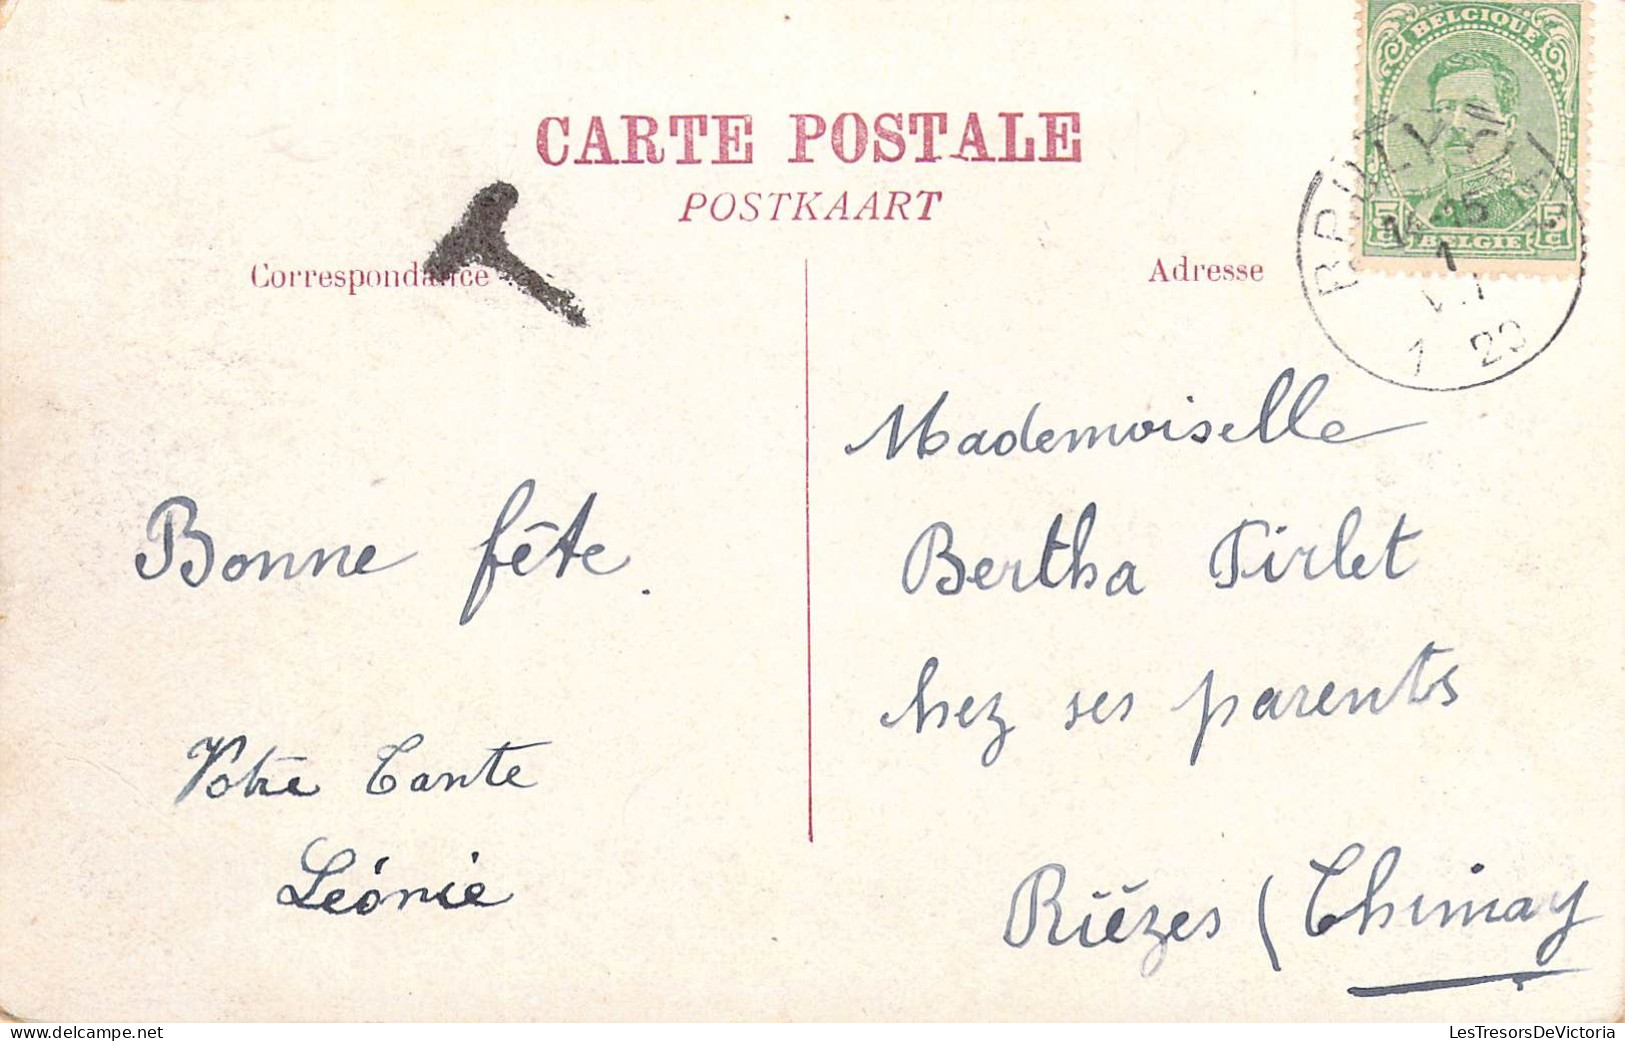 BELGIQUE
CARTE POSTALE
POSTKAART
5 c BELGIE 5 c
14-15
1
VII
1 20
Correspondance
Adresse
Mademoiselle
Bertha Pirlet
chez ses parents
Rièzes (Chimay
Bonne fête.
Votre Tante
Léonie
LesTresorsDeVictoria